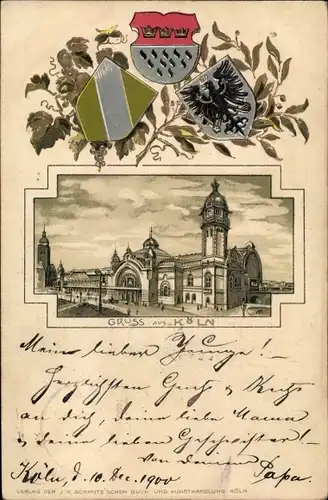 GRUSS AUS KÖLN
Mein lieber Junge! –
Herzlichsten Gruß & Kuß
an dich, deine liebe Mama
& deine lieben Geschwister! –
Von deinem
Köln, d. 10. Dec. 1900 Papa.
VERLAG DER J. H. SCHMITZ'SCHEN BUCH- UND KUNSTHANDLUNG, KÖLN